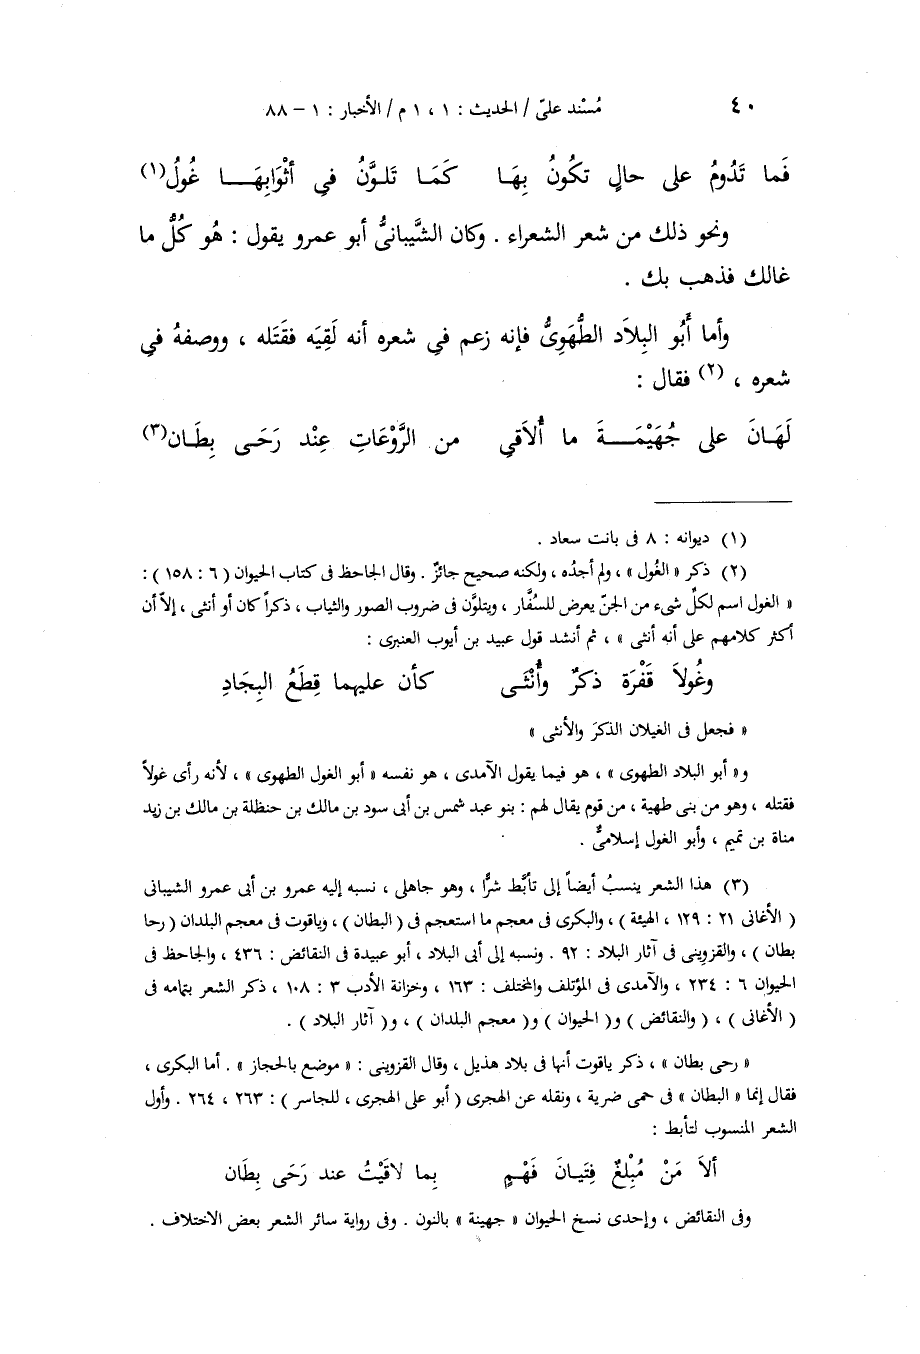 ٤٠ مُسْند علىّ / الحديث : ١ ، ١ م / الأخبار : ١ – ٨٨
فَما تَدُومُ على حالٍ تكُونُ بِهَا كَمَا تَلـوَّنُ فى أثْوَابِهَـــا غُولُ(١)
ونحو ذلك من شعر الشعراء . وكان الشَّيبانىُّ أبو عمرو يقول : هُو كُلُّ ما
غالك فذهب بك .
وأما أَبُو البِلاَد الطُّهَوِىُّ فإنه زعم فى شعره أنه لَقِيَه فقَتَله ، ووصفهُ فى
شعره ، (٢) فقال :
لَهَـانَ على جُهَيْمَـــةَ ما أُلاَقِى من الرَّوْعَاتِ عِنْد رَحَـى بِطَـان(٣)
(١) ديوانه : ٨ فى بانت سعاد .
(٢) ذكر « الغُول » ، ولم أجدُه ، ولكنه صحيح جائزٌ . وقال الجاحظ فى كتاب الحيوان ( ٦ : ١٥٨ ) :
« الغول اسم لكلِّ شىء من الجنّ يعرض للسُفَّار ، ويتلوَّن فى ضروب الصور والثياب ، ذكراً كان أو أنثى ، إلاّ أن
أكثر كلامهم على أنه أنثى » ، ثم أنشد قول عبيد بن أيوب العنبرى :
وغُولاَ قَفْرَة ذكرٌ وأُنْثَـى كأن عليهما قِطَعُ البِجَادِ
« فجعل فى الغيلان الذكرَ والأنثى »
و« أبو البلاد الطهوى » ، هو فيما يقول الآمدى ، هو نفسه « أبو الغول الطهوى » ، لأنه رأى غولاً
فقتله ، وهو من بنى طهية ، من قوم يقال لهم : بنو عبد شمس بن أبى سود بن مالك بن حنظلة بن مالك بن زيد
مناة بن تميم ، وأبو الغول إسلامىٌّ .
(٣) هذا الشعر ينسبُ أيضاً إلى تأبَّط شرًّا ، وهو جاهلى ، نسبه إليه عمرو بن أبى عمرو الشيبانى
( الأغانى ٢١ : ١٢٩ ، الهيئة ) ، والبكرى فى معجم ما استعجم فى ( البطان ) ، وياقوت فى معجم البلدان ( رحا
بطان ) ، والقزوينى فى آثار البلاد : ٩٢ . ونسبه إلى أبى البلاد ، أبو عبيدة فى النقائض : ٤٣٦ ، والجاحظ فى
الحيوان ٦ : ٢٣٤ ، والآمدى فى المؤتلف والمختلف : ١٦٣ ، وخزانة الأدب ٣ : ١٠٨ ، ذكر الشعر بتمامه فى
( الأغانى ) ، ( والنقائض ) و( الحيوان ) و( معجم البلدان ) ، و( آثار البلاد ) .
« رحى بطان » ، ذكر ياقوت أنها فى بلاد هذيل ، وقال القزوينى : « موضع بالحجاز » . أما البكرى ،
فقال إنما « البطان » فى حمى ضرية ، ونقله عن الهجرى ( أبو على الهجرى ، للجاسر ) : ٢٦٣ ، ٢٦٤ . وأول
الشعر المنسوب لتأبط :
ألاَ مَنْ مُبْلِغٌ فِتيَـانَ فَهْـمٍ بِما لاقَيْتُ عند رَحَى بِطَان
وفى النقائض ، وإحدى نسخ الحيوان « جهينة » بالنون . وفى رواية سائر الشعر بعض الاختلاف .